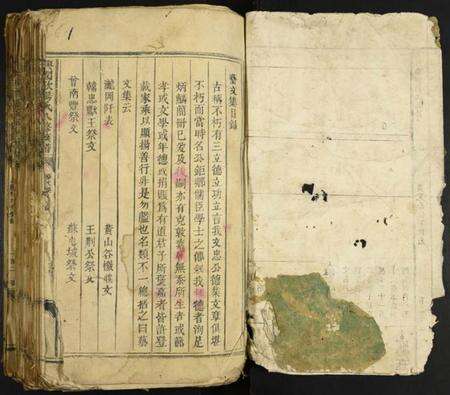 藝文集目錄
古稱不朽有三立德立功立言我文忠公德業文章俱堪
不朽而當時名公鉅鄉儒臣學士之傳銘我 德者洵足
炳麟簡冊已爰及後嗣亦有克敦 無忝所生者或節
孝或文學或年德或捐賑為有道君子所褒嘉者皆許登
載家乘以顯揚善行非是勿濫也名類不一總括之曰藝
文集云
瀧岡阡表
黃山谷 文
韓忠獻王祭文
王荊公祭文
曾南豐祭文
蘇 祭文
1